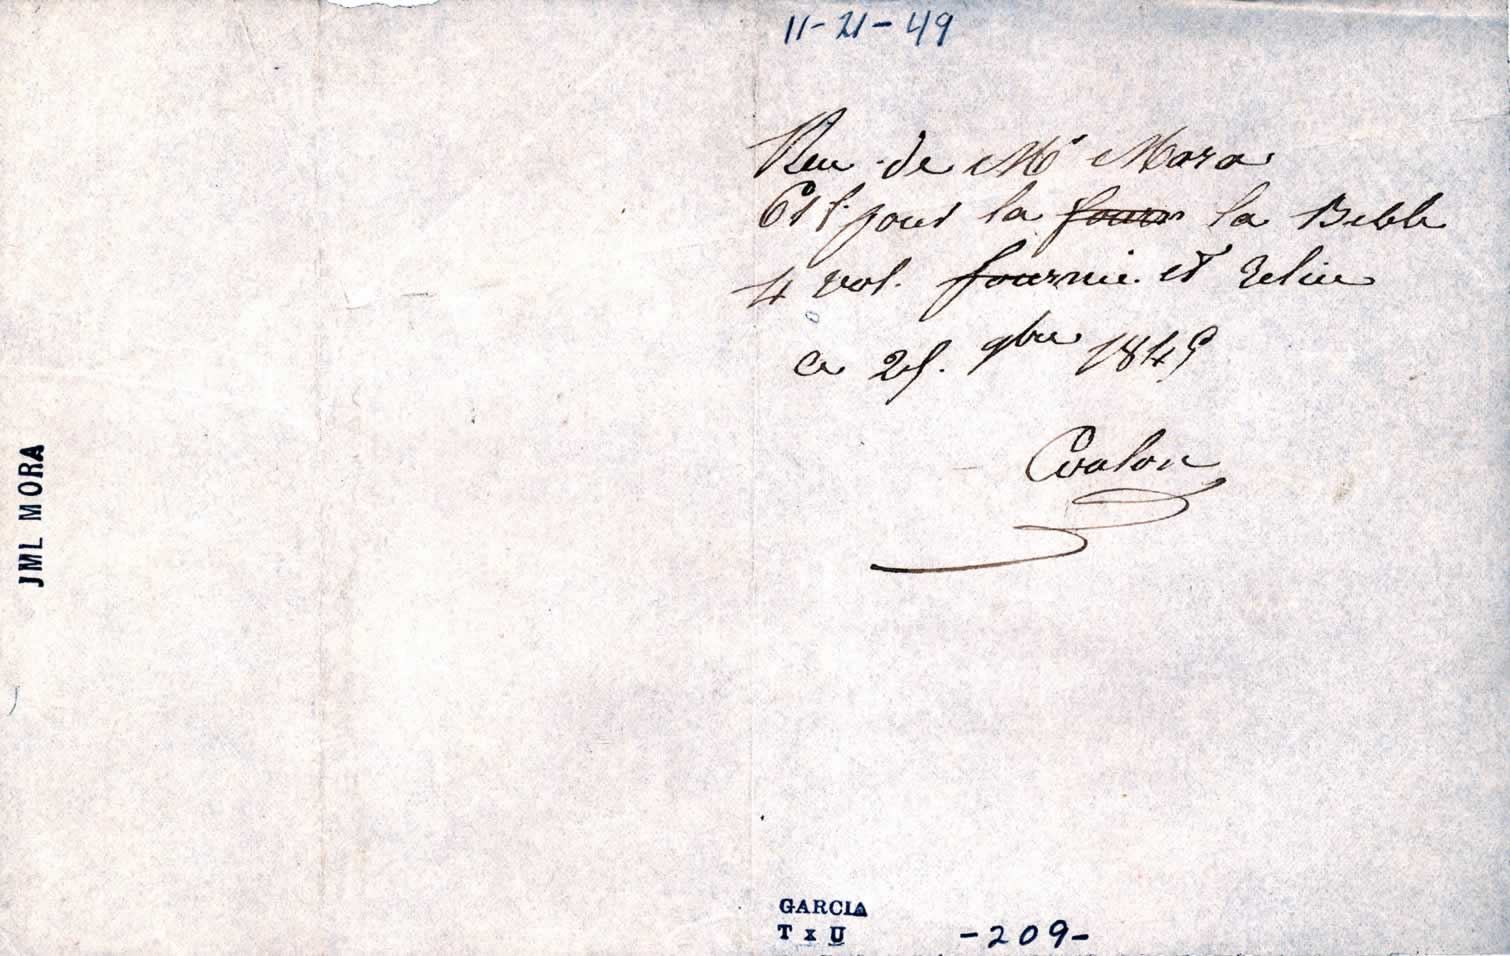 11-21-49
Reçu de Mr Mora
pour la four la Bible
4 vol. fournie et reliée
ce 9bre 1849
JML MORA
GARCIA
TxU
-209-